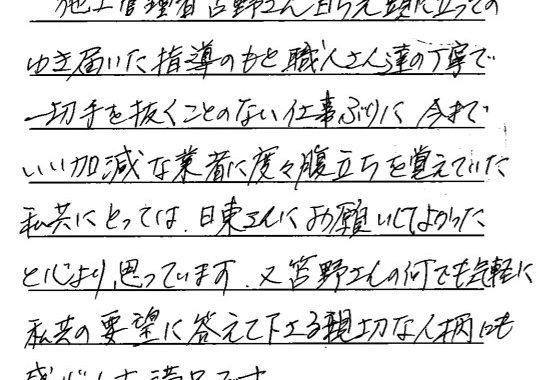 施工管理者笘野さん自ら先頭に立っての
ゆき届いた指導のもと職人さん達の丁寧で
一切手を抜くことのない仕事ぶりに今まで
いい加減な業者に度々腹立ちを覚えていた
私共にとっては、日東さんにお願いしてよかった
と心より、思っています。又笘野さんの何でも気軽に
私共の要望に答えて下さる親切な人柄にも